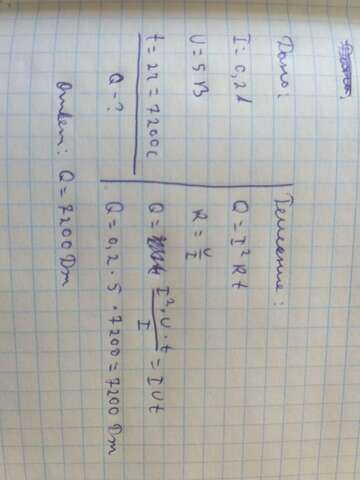 Дано:
I = 0,2 А
U = 5 В
t = 2ч = 7200 с
Q - ?
Решение:
Q = I² R t
R = U/I
Q = I²·U·t/I = I U t
Q = 0,2 · 5 · 7200 = 7200 Дж
Ответ: Q = 7200 Дж